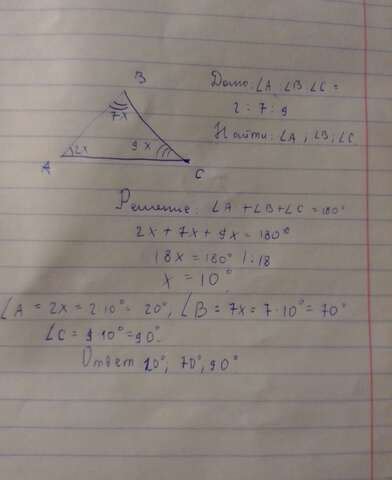 B
Дано: ∠A : ∠B : ∠C =
2 : 7 : 9
7x
Найти: ∠A, ∠B, ∠C
2x
9x
A
C
Решение: ∠A + ∠B + ∠C = 180°
2x + 7x + 9x = 180°
18x = 180° | : 18
x = 10°
∠A = 2x = 2·10° = 20°, ∠B = 7x = 7·10° = 70°
∠C = 9·10° = 90°
Ответ 20°, 70°, 90°